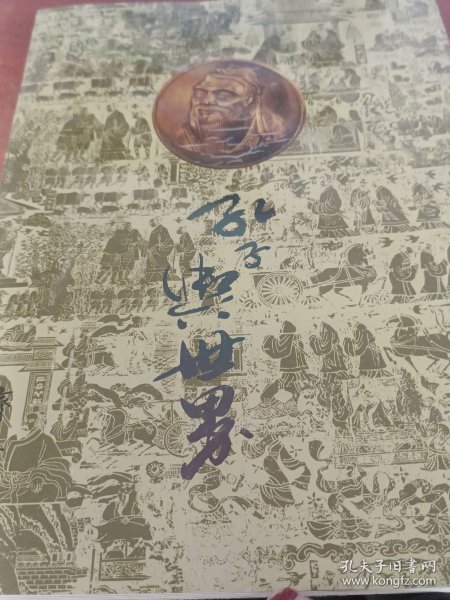 孔子與世界
孔夫子旧书网
www.kongfz.com